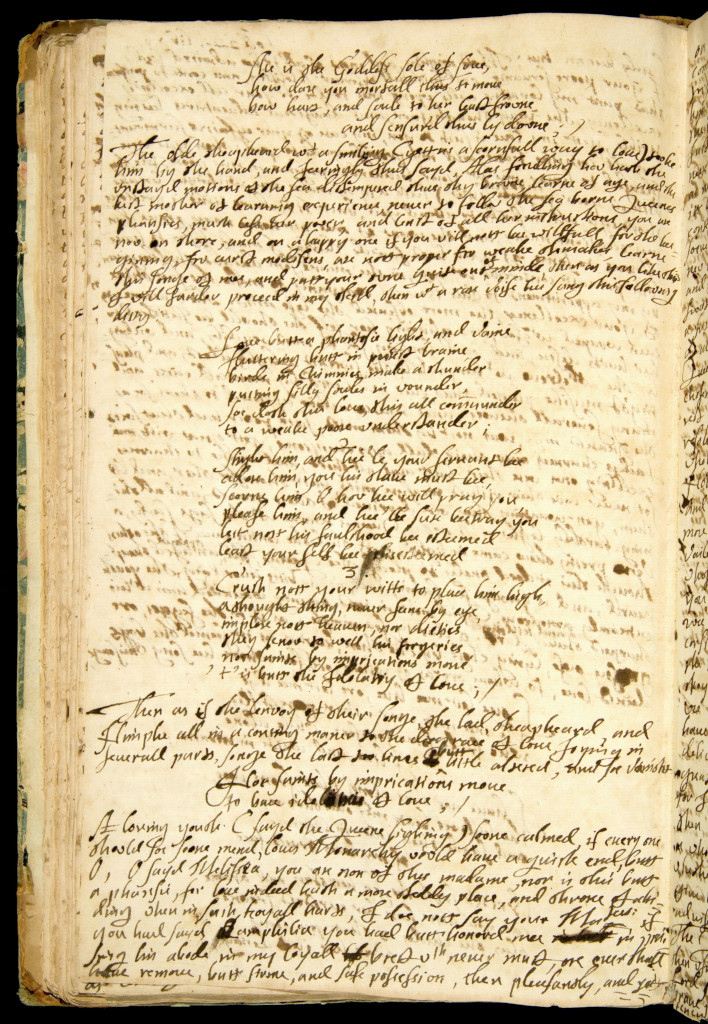 shee is the Goddess sole of love,
how dare you mortall thus to move
how hast, and soule to her butt frowne
and sensurd thus by doome; /
The olde sheapheard wt a smiling (butt in a scornfull way to love) tooke
him by the hand, and Jeeringly thus sayd, Alas fondling how hath the
unstayd motions of the sea distempered thus thy braine, learne of age, and the
best mother of learning experience never to follow the sea borne Queenes
phansies, much less her power, and least of all her instructions, you are
now on shore, and on a happy one if you will nott bee willfull for the be=
ginning, for curst modsens are nott proper for weake stomacks, learne
this songe of mee, and putt your owne in minde, then as you like this
I will farder proceed in my skill, then wt a voise hee sang this following
dittv
Love butt a phantesie light, and vaine
fluttering butt in poorest braine
birds in Chimnies make a thunder
putting silly soules in wounder,
soe doth this love, this all commander
to a weake poore understander;
2
Strike him, and hee'le your servant bee
adore him, you his slave must bee,
scorne him, O how hee will pray you
please him, and hee'le sure beetray you
lett nott his faulshood bee esteemed
least your self bee disesteemed
3
Crush nott your witts to place him high,
a thought thing, never seene by eye,
implore nott heaven, nor dieties
they know to well his forgeries
nor saints by imprications move
't is butt the Idolatry of love; /
Then as if the lenvoy of their songe, the lad, sheapheard, and
Nimphe all in a coning maner to the disgrace of love Joyning in
severall parts, songe the last to lines butt little altered, and soe vanisht
Nor saints by imprications move
to leave idolatries of love; /
A loving youth (sayd the Queene sighing) soone calmed, if every one
should soe soone mend, loves Monarchy would have a quick end, butt
O, O sayd Melissea, you ar non of thes madame, nor is this butt
a phansie, for love indeed hath a more steddy place, and throne of abi=
ding when in such royall harts, I doe nott say yours Madame; if
you had sayd Pamphilia you had butt honored mee in plac=
ing his abode, in my loyall brest wch never must, ore ever shall
have remove, butt firme, and safe possession, then pleasandly, and yett
as